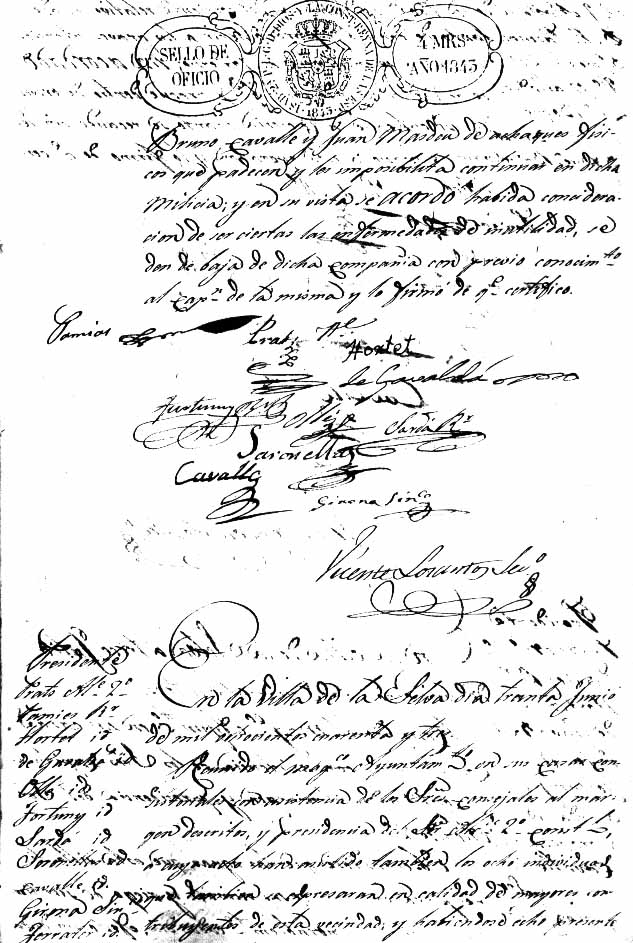 SELLO DE OFICIO
4 MRS. AÑO 1843
Bruno Cavalle y Juan Masdeu de achaques fisi-
cos que padecen y los imposibilita continuar en dicha
Milicia; y en su vista se acordo habida considera-
cion de ser ciertas las enfermedades de inutilidad, se
den de baja de dicha compañia con previo conocim.to
al cap.n de la misma y lo firmó de q.e certifico.
Pamies
Prat Al.e
Hortet
de Gavaldá
Fortuny
Ollé
Sardá R.r
Savonella
Cavallé
Girona Sin.co
Vicente Lorantos Sec.o
Presidente
Prats Al.e 2.o
Pamies R.r
Hortet id
de Gavaldá id
Ollé id
Fortuny id
Sarda id
id
Cavalle id.
Girona Sin.
Ferrater id.
En la Villa de la Selva dia treinta Junio
de mil ochocientos cuarenta y tres
Reunido el mag.co Ayuntam.to en su casas con-
sistoriales con asistencia de los Sres. concejales al mar-
gen descritos, y presidencia del Sr. Al.e 2.o const.l,
han asistido tambien los ocho individuos
que se espresaran en calidad de mayores con-
tribuyentes de esta vecindad, y habiendose echo presente